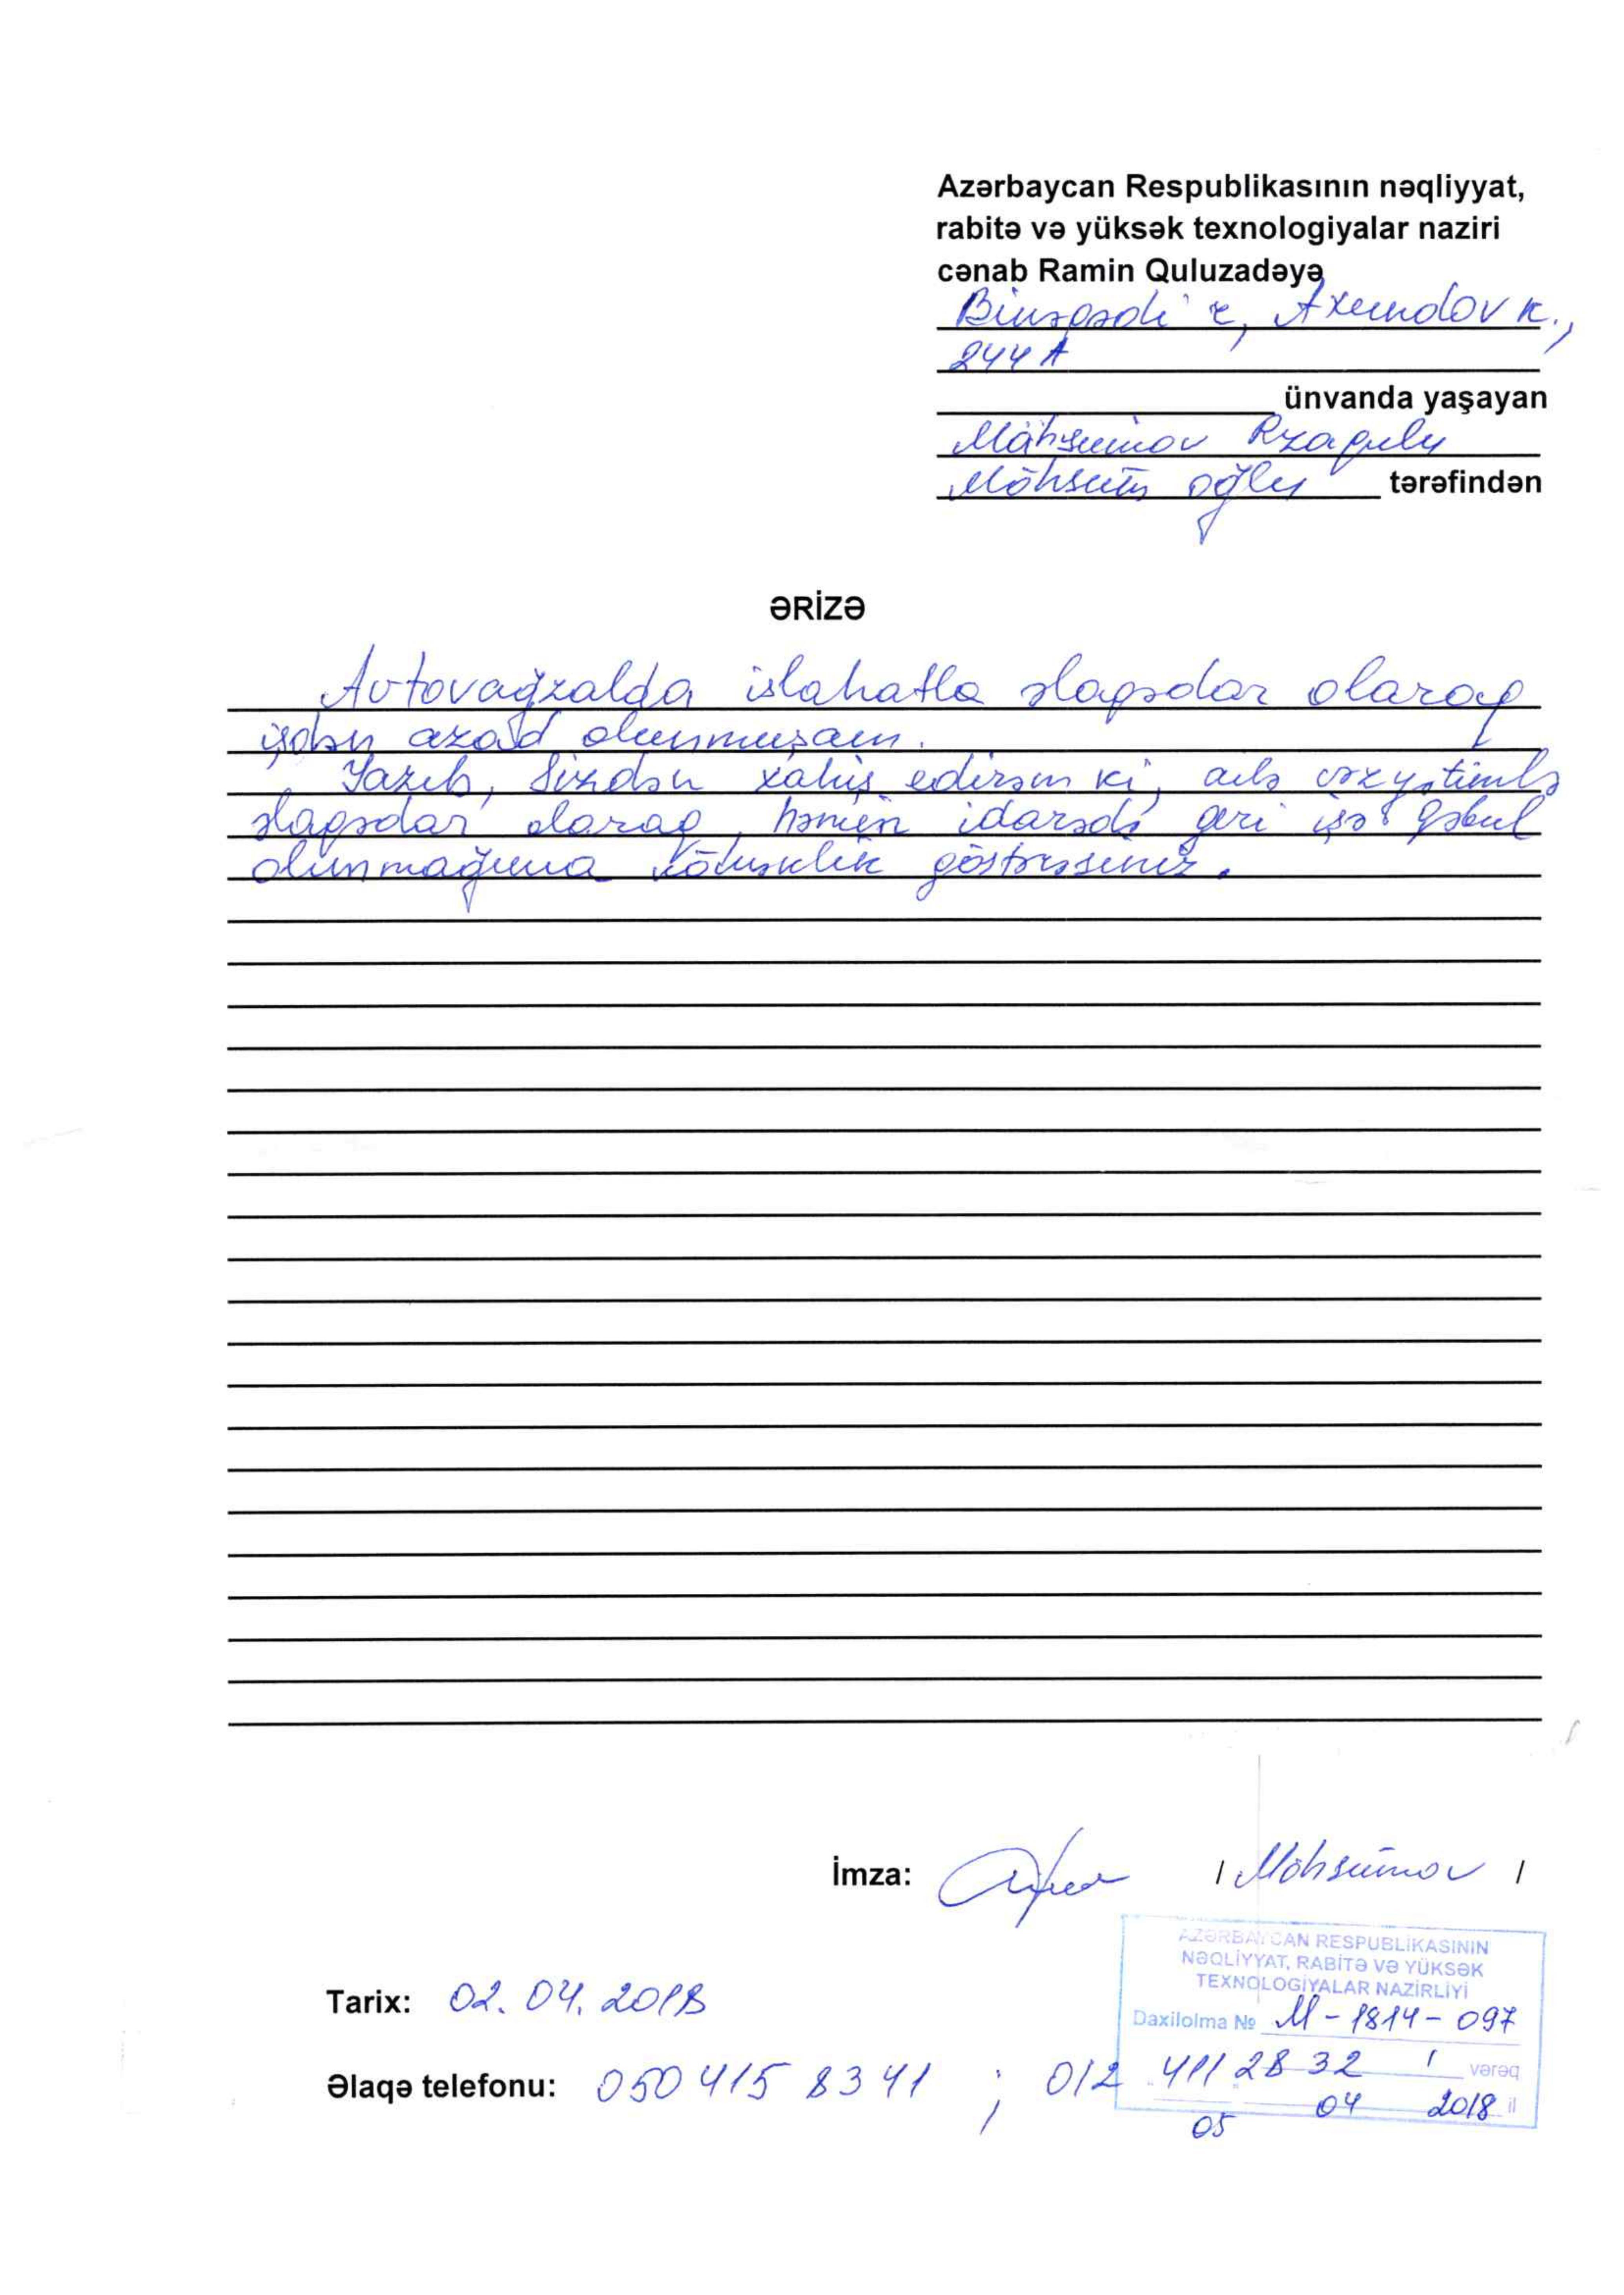 Azərbaycan Respublikasının nəqliyyat,
rabitə və yüksək texnologiyalar naziri
cənab Ramin Quluzadəyə
Binəqədi r, Axundov k.,
244 A
ünvanda yaşayan
Möhsümov Rzaqulu
Möhsüm oğlu tərəfindən
ƏRİZƏ
Avtovağzalda islahatla əlaqədar olaraq
işdən azad olunmuşam.
Yazıb, Sizdən xahiş edirəm ki, ailə vəzyətimlə
əlaqədar olaraq, həmin idarədə geri işə qəbul
olunmağıma köməklik göstərəsiniz.
İmza: / Möhsümov /
AZƏRBAYCAN RESPUBLİKASININ
NƏQLİYYAT, RABİTƏ VƏ YÜKSƏK
TEXNOLOGİYALAR NAZİRLİYİ
Tarix: 02.04.2018
Daxilolma № M-1814-097
Əlaqə telefonu: 050 415 8341 ; 012 411 28 32
1 vərəq
05 04 2018 il